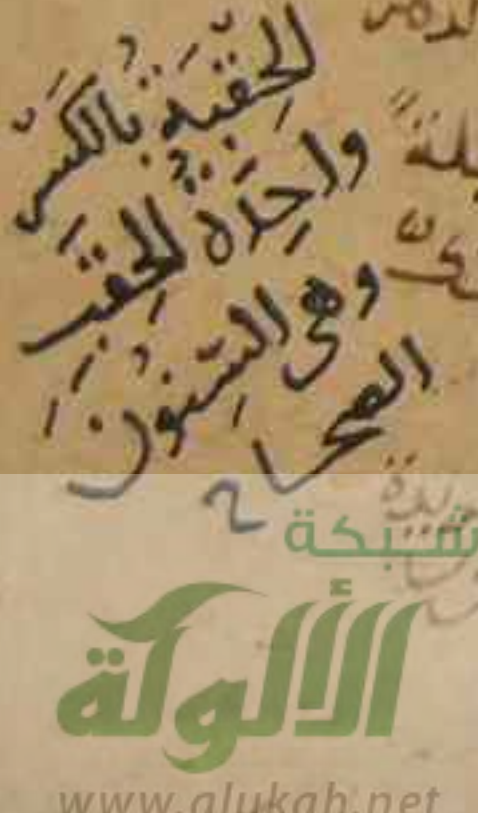 الحِقْبَة بالكَسْر
واحِدَةُ الحِقَبِ
وهي السِّنُونَ
الصحاح
شبكة
الألوكة
www.alukah.net